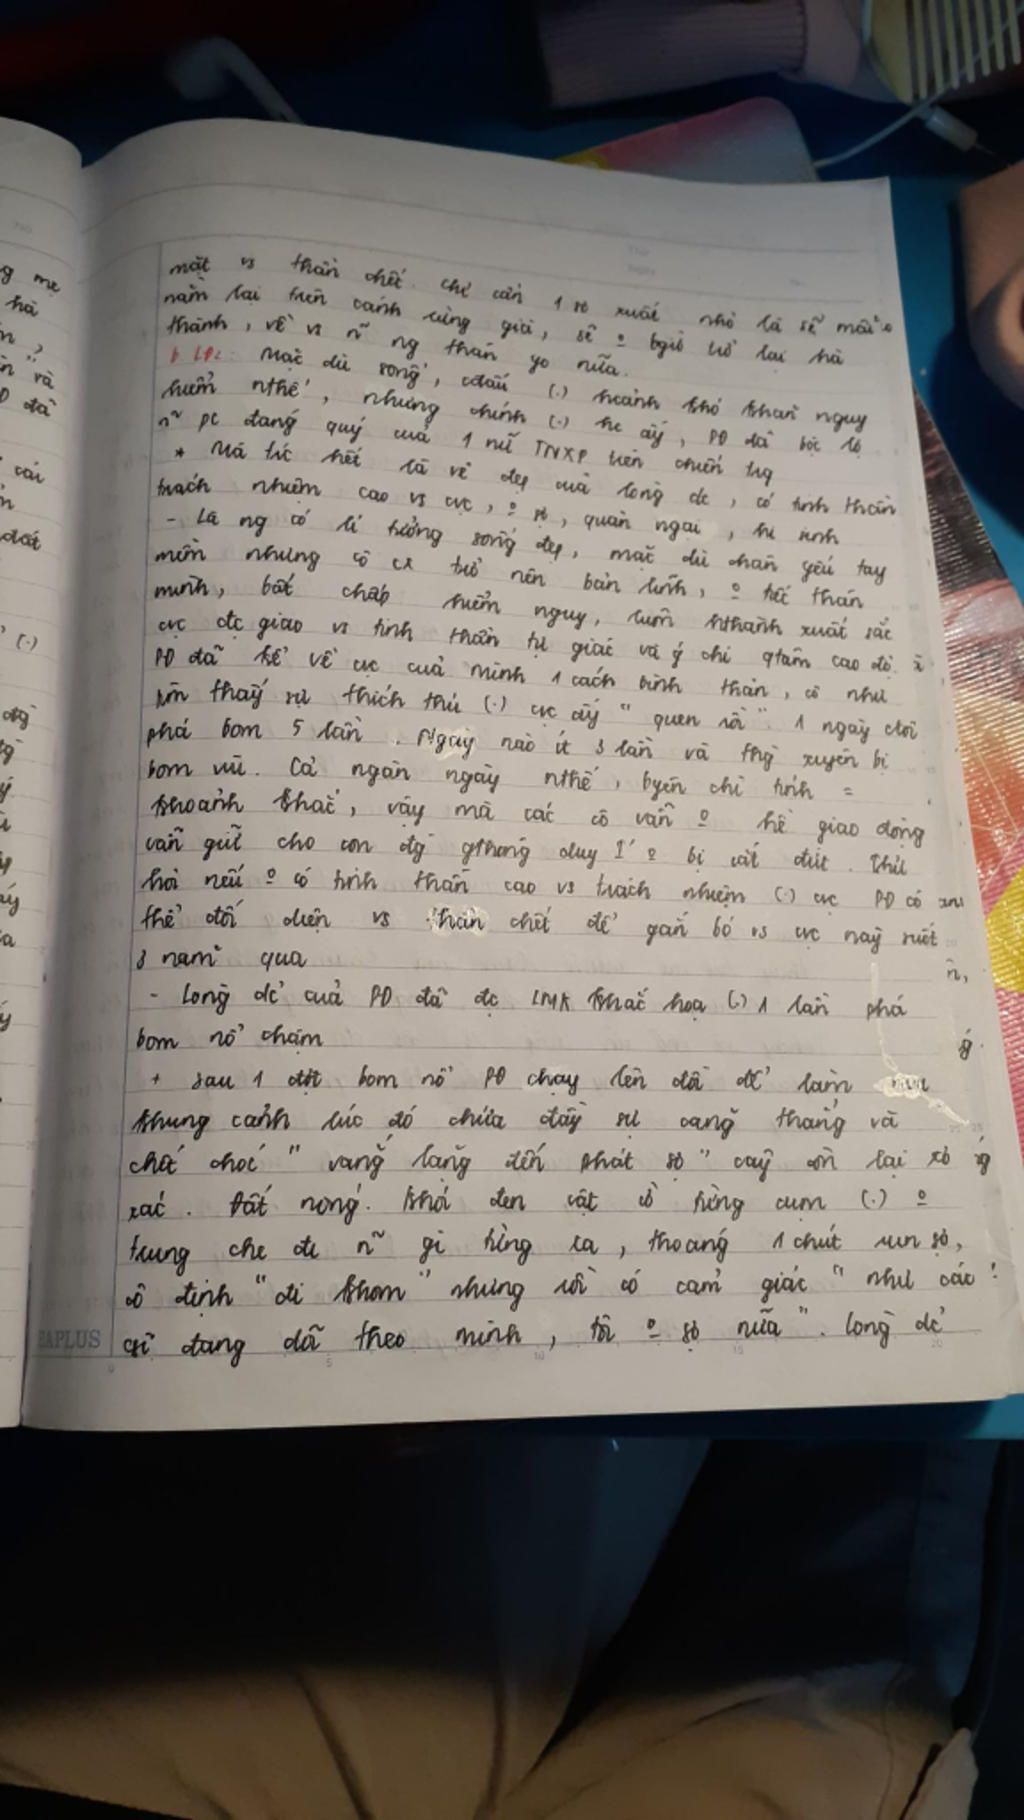 mặt vs thần chết. chỉ cần 1 sơ xuất nhỏ là sẽ mãi
nằm lại trên cánh rừng già, sẽ º bgiờ trở lại hà
thành, về vs ñ ng thân yo nữa.
b. LĐ2: Mặc dù sống, cđấu (.) hoàn khó khăn nguy
hiểm nthế, nhưng chính (.) hc ấy, PĐ đã bộc lộ
ñ pc đáng quý của 1 nữ TNXP trên chiến trg
* Mà trc hết là vẻ đẹp của lòng dc, có tinh thần
trách nhiệm cao vs cvc, º sợ, quản ngại, hi sinh
- Là ng có lí tưởng sống đẹp, mặc dù chân yếu tay
mềm nhưng cô cx trở nên bản lĩnh, º tiếc thân
mình, bất chấp hiểm nguy, luôn hthành xuất sắc
cvc đc giao vs tinh thần tự giác và ý chí qtâm cao độ.
PĐ đã kể về cvc của mình 1 cách bình thản, cô như
còn thấy sự thích thú (.) cvc ấy " quen rồi " 1 ngày chỉ
phá bom 5 lần. Ngày nào ít 3 lần và thg xuyên bị
bom vùi. Cả ngàn ngày nthế, byên chỉ tính =
khoảnh khắc, vậy mà các cô vẫn º hề giao động
vẫn giữ cho con đg gthông duy I' º bị cắt đứt. Thử
hỏi nếu º có tinh thần cao vs trách nhiệm (.) cvc PĐ có
thể đối diện vs thần chết để gắn bó vs cvc này suốt
3 năm qua
- Lòng dc' của PĐ đã đc LMK khắc họa (.) 1 lần phá
bom nổ chậm
+ Sau 1 đợt bom nổ PĐ chạy lên đồi để làm
khung cảnh lúc đó chứa đầy sự căng thẳng và
chết chóc " vắng lặng đến phát sợ " cây còn lại xơ
xác. Đất nóng. Khói đen vật vờ từng cụm (.) º
trung che đi ñ gì từng xa, thoáng 1 chút run sợ,
cô định " đi khom " nhưng rồi có cảm giác " như các
csĩ đang dõi theo mình, tôi º sợ nữa ". Lòng dc'
EAPLUS